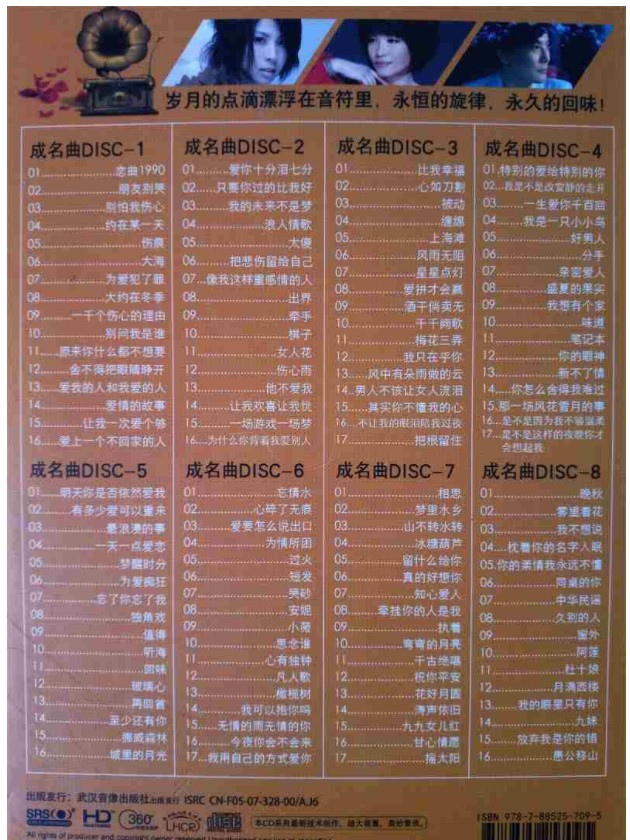 岁月的点滴漂浮在音符里，永恒的旋律，永久的回味！
成名曲DISC-1
01......恋曲1990
02......朋友别哭
03......别怕我伤心
04......约在某一天
05......伤痕
06......大海
07......为爱犯了罪
08......大约在冬季
09......一千个伤心的理由
10......别问我是谁
11......原来你什么都不想要
12......舍不得把眼睛睁开
13......爱我的人和我爱的人
14......爱情的故事
15......让我一次爱个够
16......爱上一个不回家的人
成名曲DISC-2
01......爱你十分泪七分
02......只要你过的比我好
03......我的未来不是梦
04......浪人情歌
05......太傻
06......把悲伤留给自己
07......像我这样重感情的人
08......出界
09......牵手
10......棋子
11......女人花
12......伤心雨
13......他不爱我
14......让我欢喜让我忧
15......一场游戏一场梦
16......为什么你背着我爱别人
成名曲DISC-3
01......比我幸福
02......心如刀割
03......被动
04......缠绵
05......上海滩
06......风雨无阻
07......星星点灯
08......爱拼才会赢
09......酒干倘卖无
10......千千阙歌
11......梅花三弄
12......我只在乎你
13......风中有朵雨做的云
14...男人不该让女人流泪
15......其实你不懂我的心
16...不让我的眼泪陪我过夜
17......把根留住
成名曲DISC-4
01.特别的爱给特别的你
02...我是不是该安静的走开
03......一生爱你千百回
04......我是一只小小鸟
05......好男人
06......分手
07......亲密爱人
08......盛夏的果实
09......我想有个家
10......味道
11......笔记本
12......你的眼神
13......新不了情
14......你怎么舍得我难过
15...那一场风花雪月的事
16...是不是因为我不够温柔
17...是不是这样的夜晚你才
会想起我
成名曲DISC-5
01......明天你是否依然爱我
02......有多少爱可以重来
03......最浪漫的事
04......一天一点爱恋
05......梦醒时分
06......为爱痴狂
07......忘了你忘了我
08......独角戏
09......值得
10......听海
11......回味
12......玻璃心
13......再回首
14......至少还有你
15......挪威森林
16......城里的月光
成名曲DISC-6
01......忘情水
02......心碎了无痕
03......爱要怎么说出口
04......为情所困
05......过火
06......短发
07......哭砂
08......安妮
09......小薇
10......思念谁
11......心有独钟
12......凡人歌
13......橄榄树
14......我可以抱你吗
15......无情的雨无情的你
16......今夜你会不会来
17...我用自己的方式爱你
成名曲DISC-7
01......相思
02......梦里水乡
03......山不转水转
04......冰糖葫芦
05......留什么给你
06......真的好想你
07......知心爱人
08......牵挂你的人是我
09......执着
10......弯弯的月亮
11......千古绝唱
12......祝你平安
13......花好月圆
14......涛声依旧
15......九九女儿红
16......甘心情愿
17......摇太阳
成名曲DISC-8
01......晚秋
02......雾里看花
03......我不想说
04......枕着你的名字入眠
05.你的柔情我永远不懂
06......同桌的你
07......中华民谣
08......久别的人
09......窗外
10......阿莲
11......杜十娘
12......月满西楼
13......我的眼里只有你
14......九妹
15......放弃我是你的错
16......愚公移山
出版发行：武汉音像出版社出版发行 ISRC CN-F05-07-328-00/A.J6
SRS HD 360°
本CD采用最新技术制作，超大容量，良妙音质。
ISBN 978-7-88525-709-5
All rights of producer and copyright owner reserved